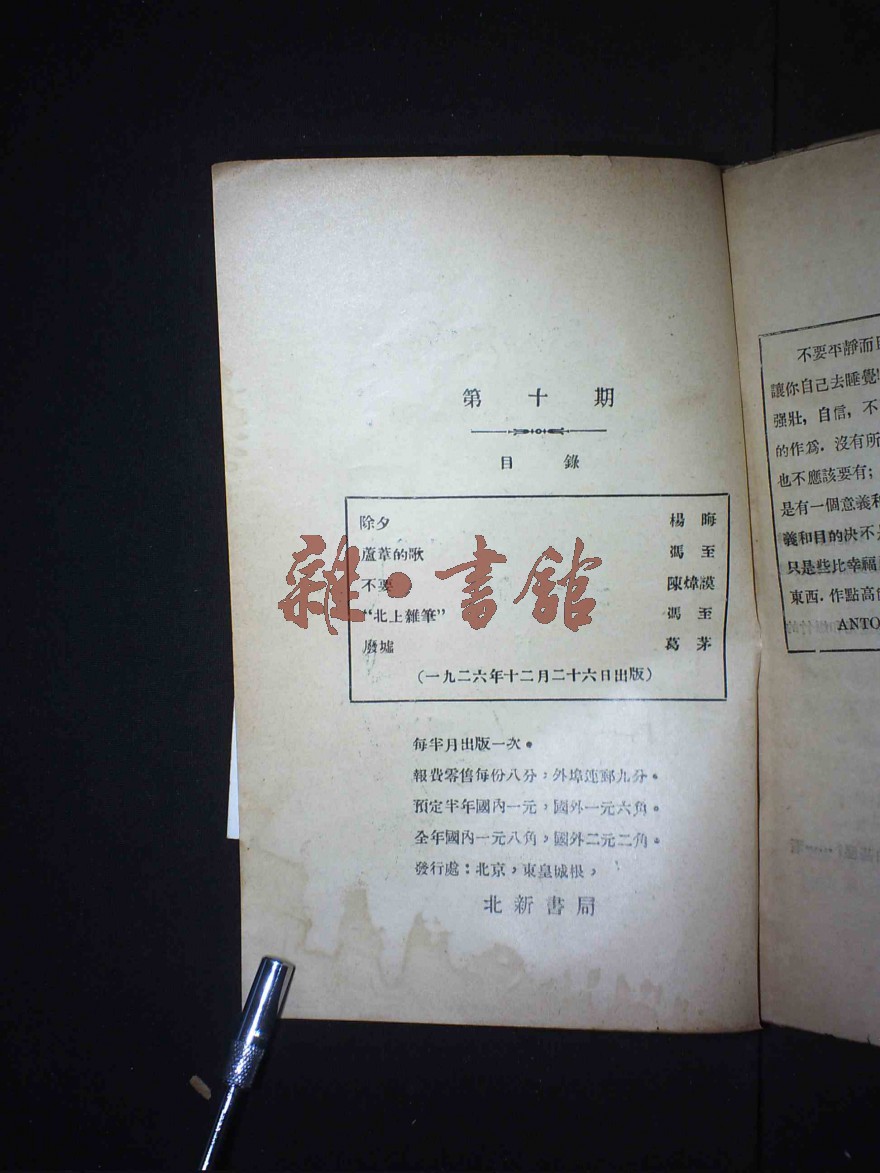 第十期
目錄
除夕 楊晦
蘆葦的歌 馮至
不要 陳煒謨
“北上雜筆” 馮至
廢墟 葛茅
(一九二六年十二月二十六日出版)
每半月出版一次。
報費零售每份八分，外埠連郵九分。
預定半年國內一元，國外一元六角。
全年國內一元八角，國外二元二角。
發行處：北京，東皇城根，
北新書局
雜·書館
不要平靜而
讓你自己去睡覺
强壯，自信，不
的作爲．沒有所
也不應該要有；
是有一個意義和
義和目的决不是
只是些比幸福
東西．作點高
ANTO